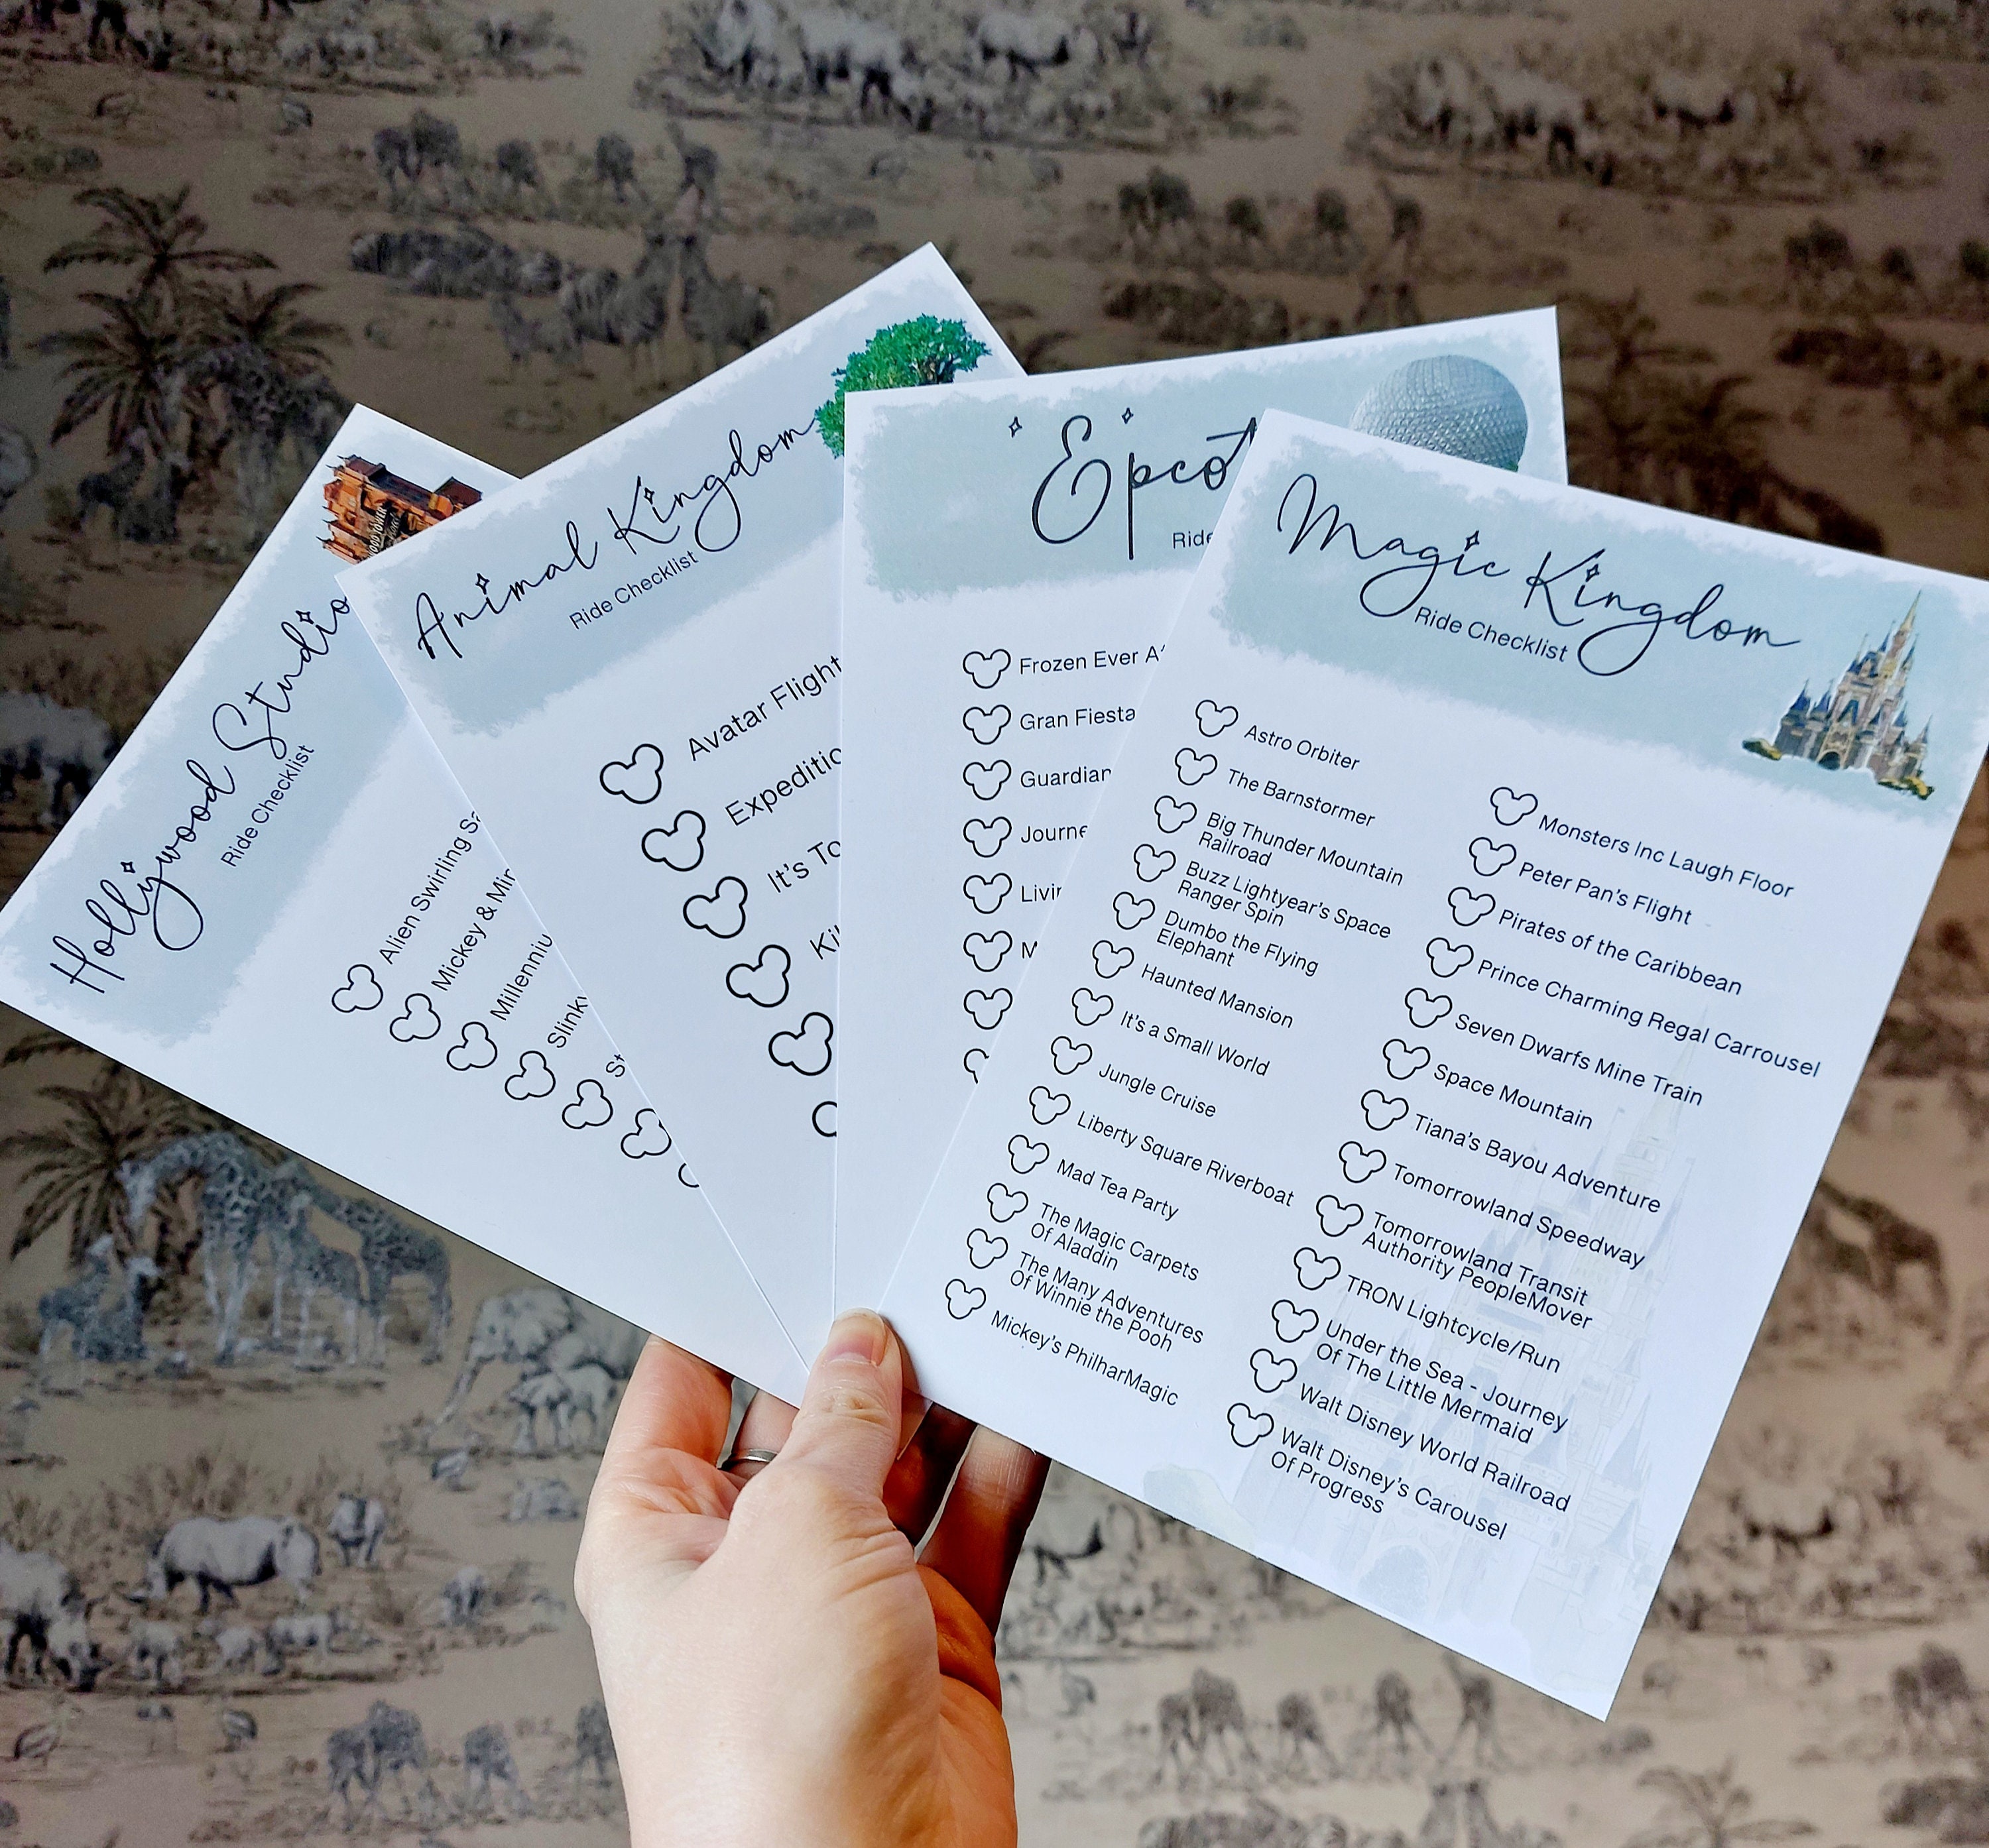 Hollywood Studio
Ride Checklist
Alien Swirling
Mickey &
Animal Kingdom
Ride Checklist
Avatar Flight
It's
Epcot
Ride
Frozen Ever
Gran Fiesta
Magic Kingdom
Ride Checklist
Astro Orbiter
The Barnstormer
Big Thunder Mountain
Railroad
Buzz Lightyear's Space
Ranger Spin
Dumbo the Flying
Elephant
Haunted Mansion
It's a Small World
Jungle Cruise
Liberty Square Riverboat
Mad Tea Party
The Magic Carpets
Of Aladdin
The Many Adventures
Of Winnie the Pooh
Mickey's PhilharMagic
Monsters Inc Laugh Floor
Peter Pan's Flight
Pirates of the Caribbean
Prince Charming Regal Carrousel
Seven Dwarfs Mine Train
Space Mountain
Tiana's Bayou Adventure
Tomorrowland Speedway
Tomorrowland Transit
Authority PeopleMover
TRON Lightcycle/Run
Under the Sea - Journey
Of The Little Mermaid
Walt Disney World Railroad
Walt Disney's Carousel
Of Progress